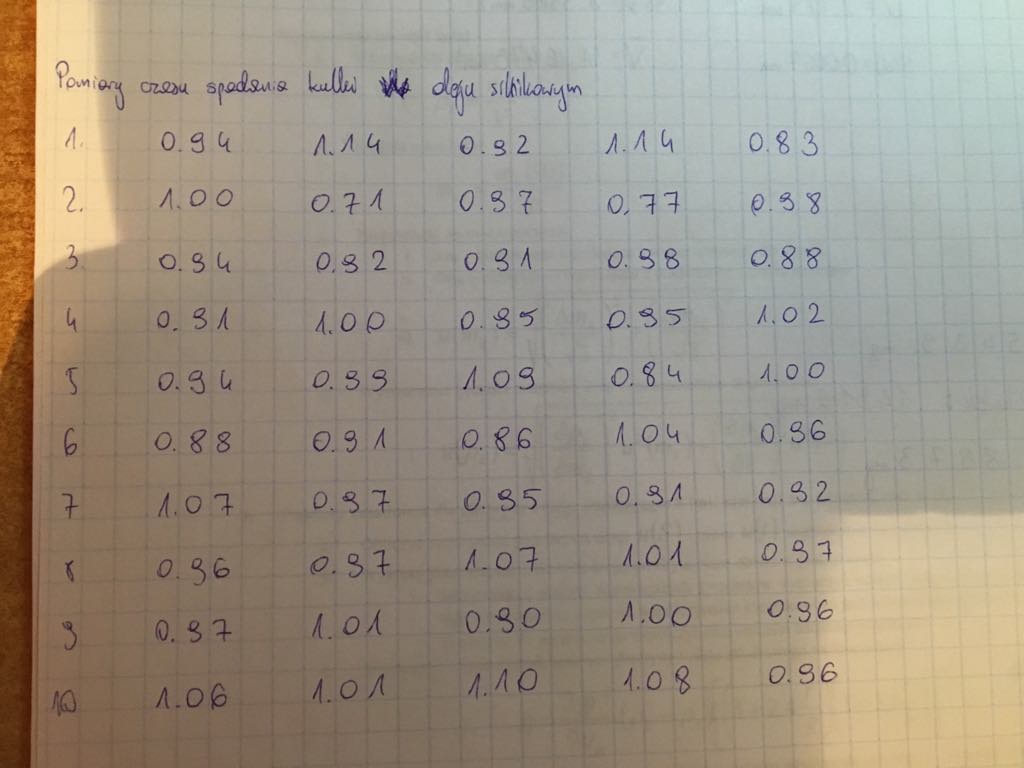 Pomiary czasu spadania kulki oleju silikowym
1. 0.94 1.14 0.92 1.14 0.83
2. 1.00 0.71 0.97 0,77 0.98
3. 0.94 0.92 0.91 0.98 0.88
4 0.91 1.00 0.95 0.95 1.02
5 0.94 0.99 1.09 0.84 1.00
6 0.88 0.91 0.86 1.04 0.96
7 1.07 0.97 0.95 0.91 0.92
8 0.96 0.97 1.07 1.01 0.97
9 0.97 1.01 0.90 1.00 0.96
10 1.06 1.01 1.10 1.08 0.96